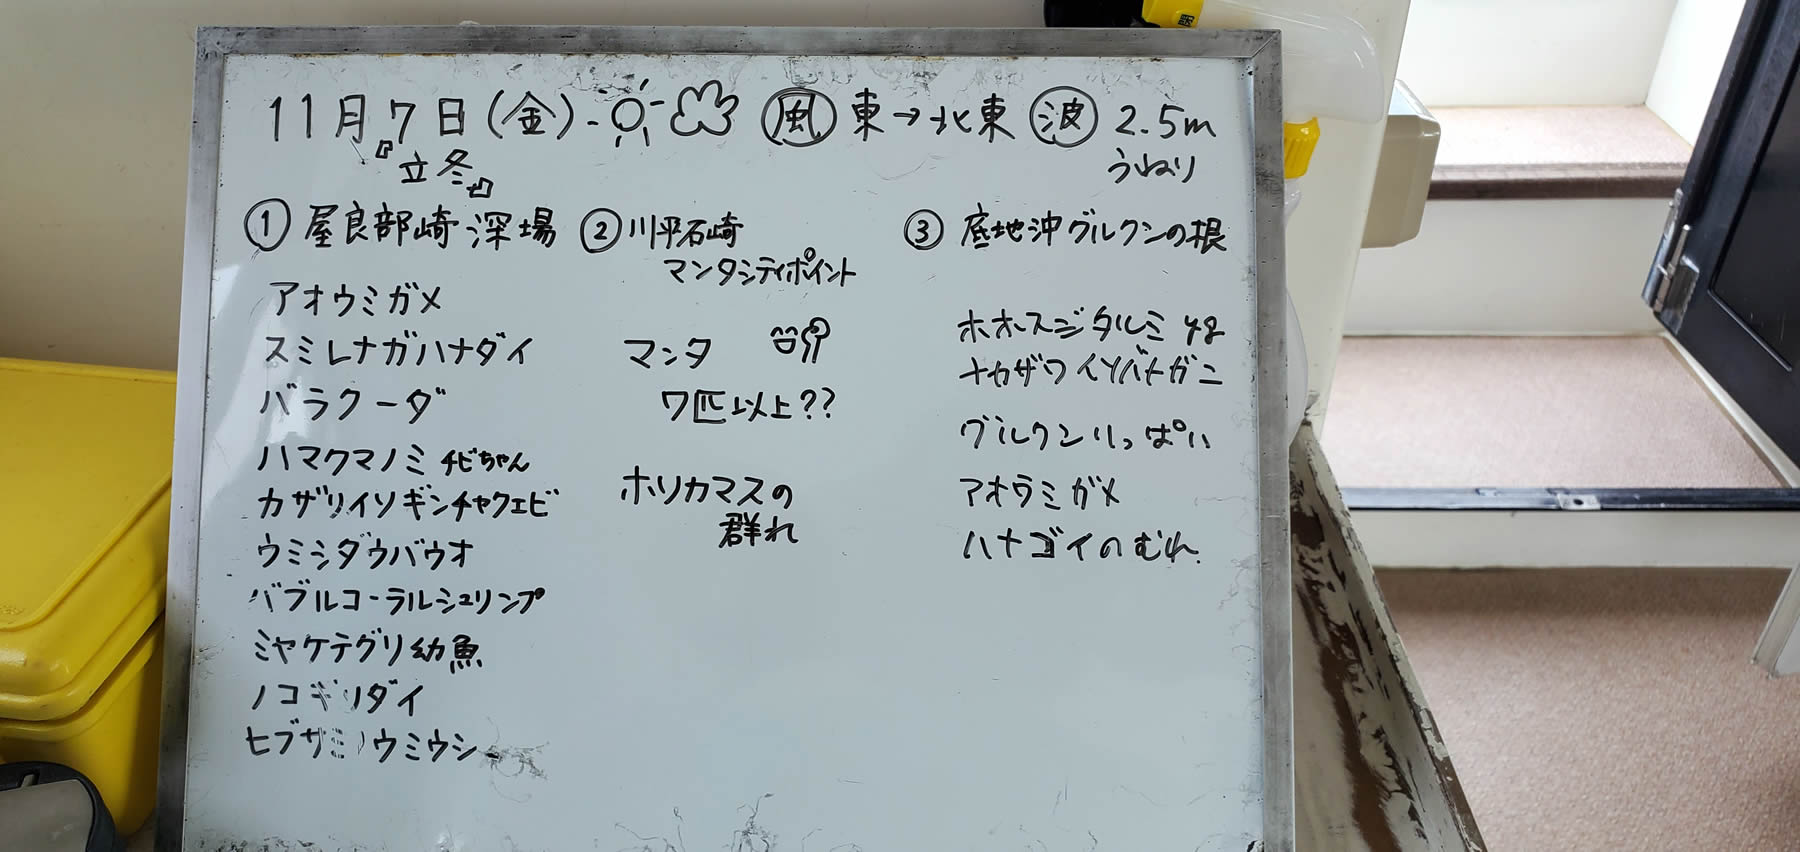 11月7日(金) 風 東→北東 波 2.5m
『立冬』
うねり
① 屋良部崎 深場
アオウミガメ
スミレナガハナダイ
バラクーダ
ハマクマノミ チビちゃん
カザリイソギンチャクエビ
ウミシダウバウオ
バブルコーラルシュリンプ
ミヤケテグリ幼魚
ノコギリダイ
ヒブサミノウミウシ
② 川平石崎
マンタシティポイント
マンタ
7匹以上??
ホソカマスの
群れ
③ 底地沖グルクンの根
ホホスジタルミ yg
ナカザワイソバナガニ
グルクンいっぱい
アオウミガメ
ハナゴイのむれ